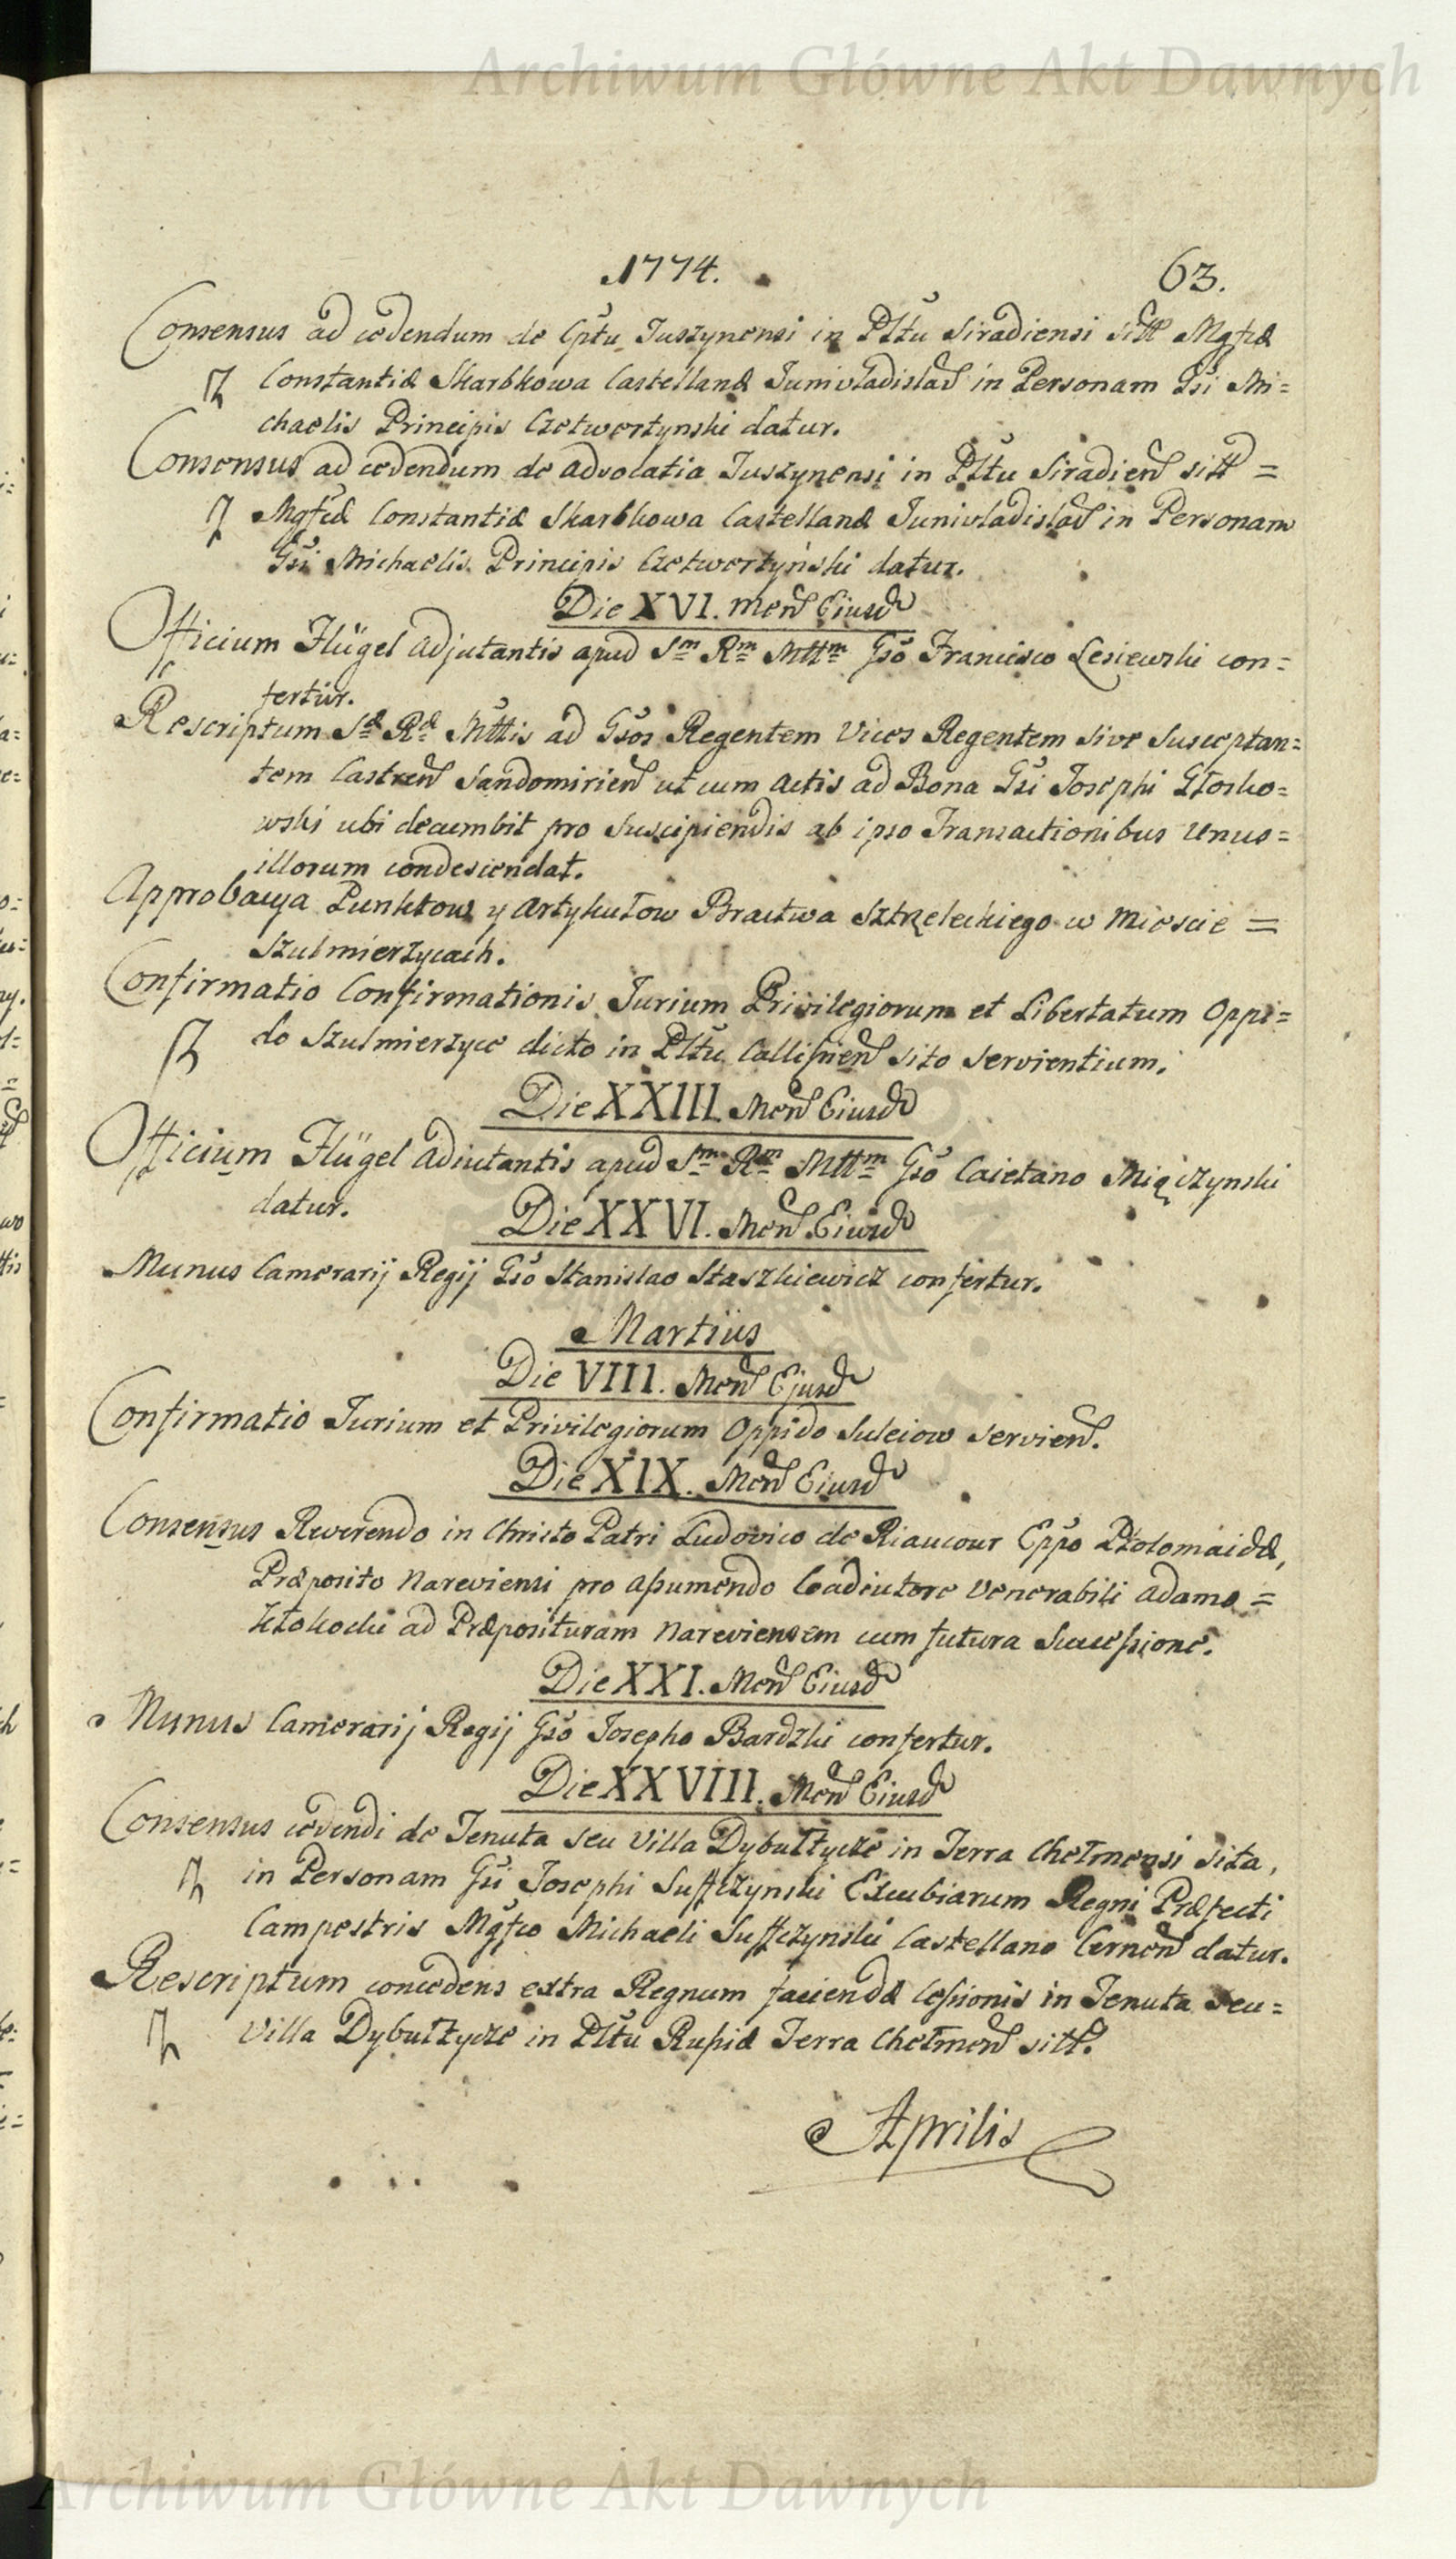 Archiwum Główne Akt Dawnych
1774. 63.
Consensus ad cedendum de Cptu Tuszynensi in Plttu Siradiensi sitt Mgfcæ
Constantiæ Skarbkowa Castellanæ Junivladislaẽ in Personam Gsi Mi=
chaelis Principis Czetwertynski datur.
Consensus ad cedendum de advocatia Tuszynensi in Plttu Siradien sitt =
Mgfcæ Constantiæ Skarbkowa Castellanæ Junivladislaẽ in Personam
Gsi Michaelis Principis Czetwertyński datur.
Die XVI. Men Eiusd
Officium Flügel Adjutantis apud Sm Rm Mttm Gso Francisco Lesiewski con=
fertur.
Rescriptum Sæ Ræ Mttis ad Gsos Regentem Vices Regentem sive Susceptan=
tem Castren Sandomirien ut cum actis ad Bona Gsi Josephi Głosko=
wski ubi decumbit pro suscipiendis ab ipso Transactionibus unus=
illorum condescendat.
Approbacya Punktow y Artykułow Bractwa Sztrzeleckiego w Miescie =
Szulmierzycach.
Confirmatio Confirmationis Jurium Privilegiorum et Libertatum Oppi=
do Szulmierzyce dicto in Plttu Callissien sito servientium.
Die XXIII. Men Eiusd
Officium Flügel Adiutantis apud Sm Rm Mttm Gso Caietano Miączynski
datur.
Die XXVI. Men Eiusd
Munus Camerarij Regij Gso Stanislao Staszkiewicz confertur.
Martius
Die VIII. Men Ejusd
Confirmatio Jurium et Privilegiorum Oppido Suleiow servien.
Die XIX. Men Eiusd
Consensus Reverendo in Christo Patri Ludovico de Riaucour Eppo Ptolomaidæ,
Præposito Nareviensi pro assumendo Coadiutore Venerabili Adamo =
Kłokocki ad Præposituram Nareviensem cum futura Successione.
Die XXI. Men Eiusd
Munus Camerarij Regij Gso Josepho Bardzki confertur.
Die XXVIII. Men Eiusd
Consensus cedendi de Tenuta seu Villa Dybułtycze in Terra Chełmensi sita,
in Personam Gsi Josephi Suffczynski Excubiarum Regni Præfecti
Campestris Mgfco Michaeli Suffczynski Castellano Cernen datur.
Rescriptum concedens extra Regnum faciendæ Cessionis in Tenuta seu=
Villa Dybułtycze in Plttu Russiæ Terra Chełmen sitt.
Aprilis
Archiwum Główne Akt Dawnych